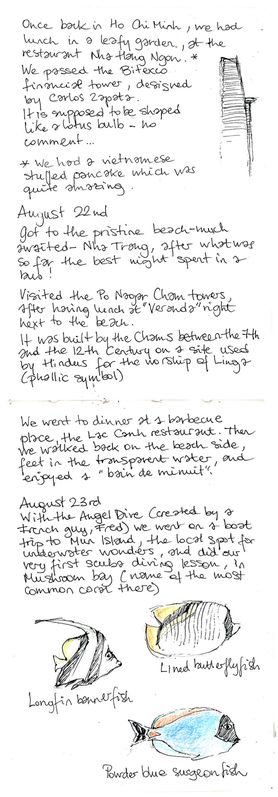 Once back in Ho Chi Minh, we had
lunch in a leafy garden, at the
restaurant Nha Hang Ngon. *
We passed the Bitexco
financial tower, designed
by Carlos Zapata.
It is supposed to be shaped
like a lotus bulb - no
comment...
* We had a vietnamese
stuffed pancake which was
quite amazing.
August 22nd
Got to the pristine beach-much
awaited- Nha Trang, after what was
so far the best night spent in a
bus!
Visited the Po Nagar Cham towers,
after having lunch at "Veranda" right
next to the beach.
It was built by the Chams between the 7th
and the 12th Century on a site used
by Hindus for the worship of Linga
(phallic symbol)
We went to dinner at a barbecue
place, the Lac Canh restaurant. Then
we walked back on the beach side,
feet in the transparent water, and
enjoyed a "bain de minuit".
August 23rd
With the Angel Dive (created by a
French guy, Fred) we went on a boat
trip to Mun Island, the local spot for
underwater wonders, and did our
very first scuba diving lesson, in
Mushroom bay (name of the most
common coral there)
Lined butterflyfish
Longfin bannerfish
Powder blue surgeonfish